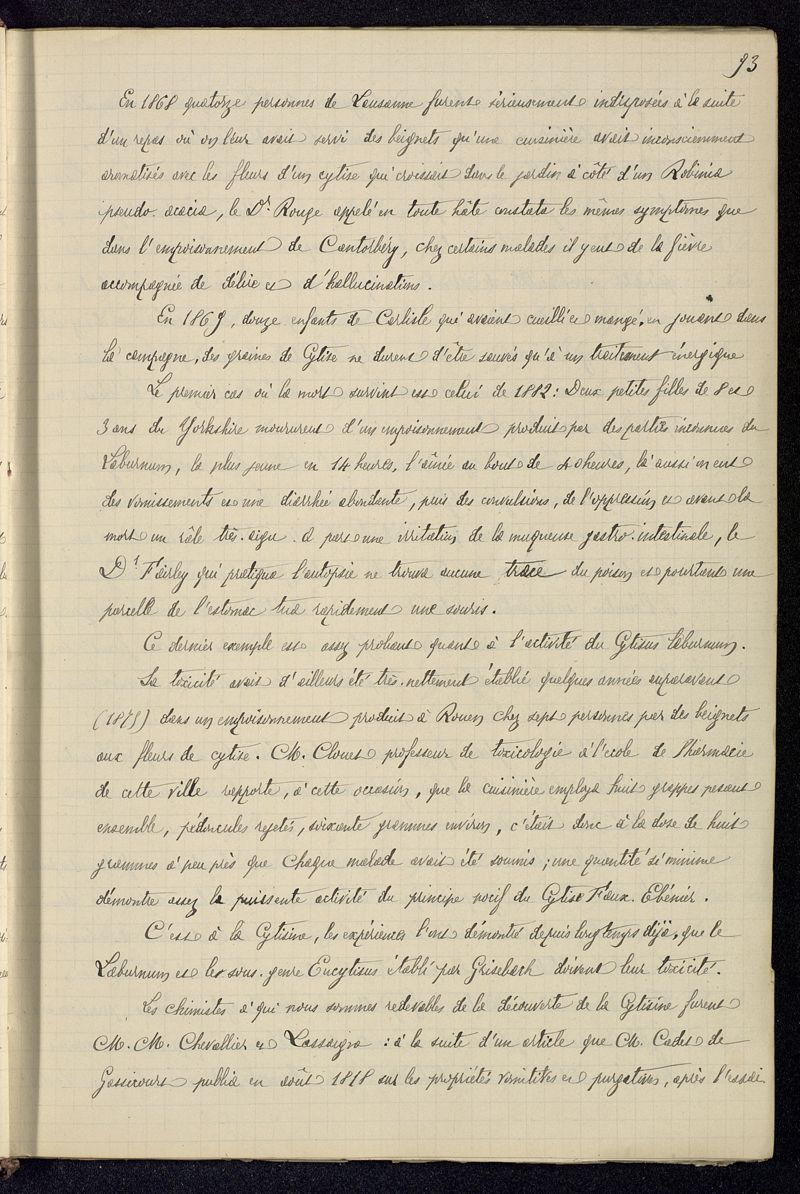 93
En 1868 quatorze personnes de Lausanne furent sérieusement indisposées à la suite
d'un repas où on leur avait servi des beignets qu'une cuisinière avait inconsciemment
aromatisés avec les fleurs d'un cytise qui croissait dans le jardin à côté d'un Robinia
pseudo. acacia, le Dr Rouge appelé en toute hâte constata les mêmes symptômes que
dans l'empoisonnement de Cantorbéry, chez certains malades il y eut de la fièvre
accompagnée de délire et d'hallucinations.
En 1869, douze enfants de Carlisle qui avaient cueilli et mangé, en jouant dans
la campagne, des graines de Cytise ne durent d'être sauvés qu'à un traitement énergique
Le premier cas où la mort survint est celui de 1882 : Deux petites filles de 8 et
3 ans du Yorkshire moururent d'un empoisonnement produit par des parties inconnues du
Laburnum, la plus jeune en 14 heures, l'aînée au bout de heures, là aussi on eut
des vomissements et une diarrhée abondante, puis des convulsions, de l'oppression et avant la
mort un râle très. aigu. à part une irritation de la muqueuse gastro. intestinale, le
Dr Fairley qui pratiqua l'autopsie ne trouva aucune trace du poison et pourtant une
parcelle de l'estomac tua rapidement une souris.
Ce dernier exemple est assez probant quant à l'activité du Cytisus Laburnum.
Sa toxicité avait d'ailleurs été très. nettement établie quelques années auparavant
(1875) dans un empoisonnement produit à Rouen chez sept personnes par des beignets
aux fleurs de cytise. M. Clouet professeur de toxicologie à l'école de Pharmacie
de cette ville rapporte, à cette occasion, que la cuisinière employa huit grappes pesant
ensemble, pédoncules rejetés, soixante grammes environ, c'était donc à la dose de huit
grammes à peu près que chaque malade avait été soumis ; une quantité si minime
démontre assez la puissante activité du principe nocif du Cytise Faux. Ebénier.
C'est à la Cytisine, les expériences l'ont démontré depuis longtemps déjà, que le
Laburnum et les sous. genre Eucytisus établi par Grisebach doivent leur toxicité.
Les chimistes à qui nous sommes redevables de la découverte de la Cytisine furent
M. M. Chevallier et Lassaigne : à la suite d'un article que M. Cadet de
Gassicourt publia en août 1818 sur les propriétés vomitives et purgatives, après l'essai